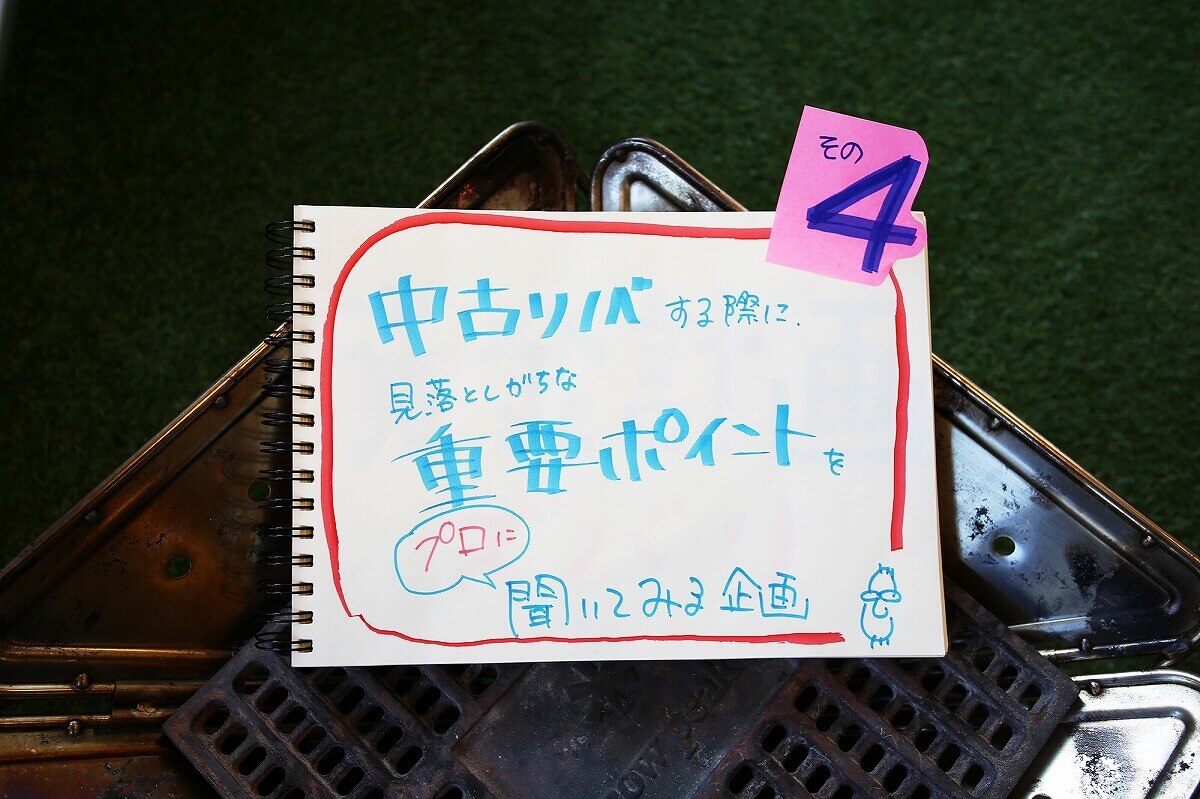 その
4
中古リノベする際に、
見落としがちな
重要ポイントを
プロに
聞いてみる企画